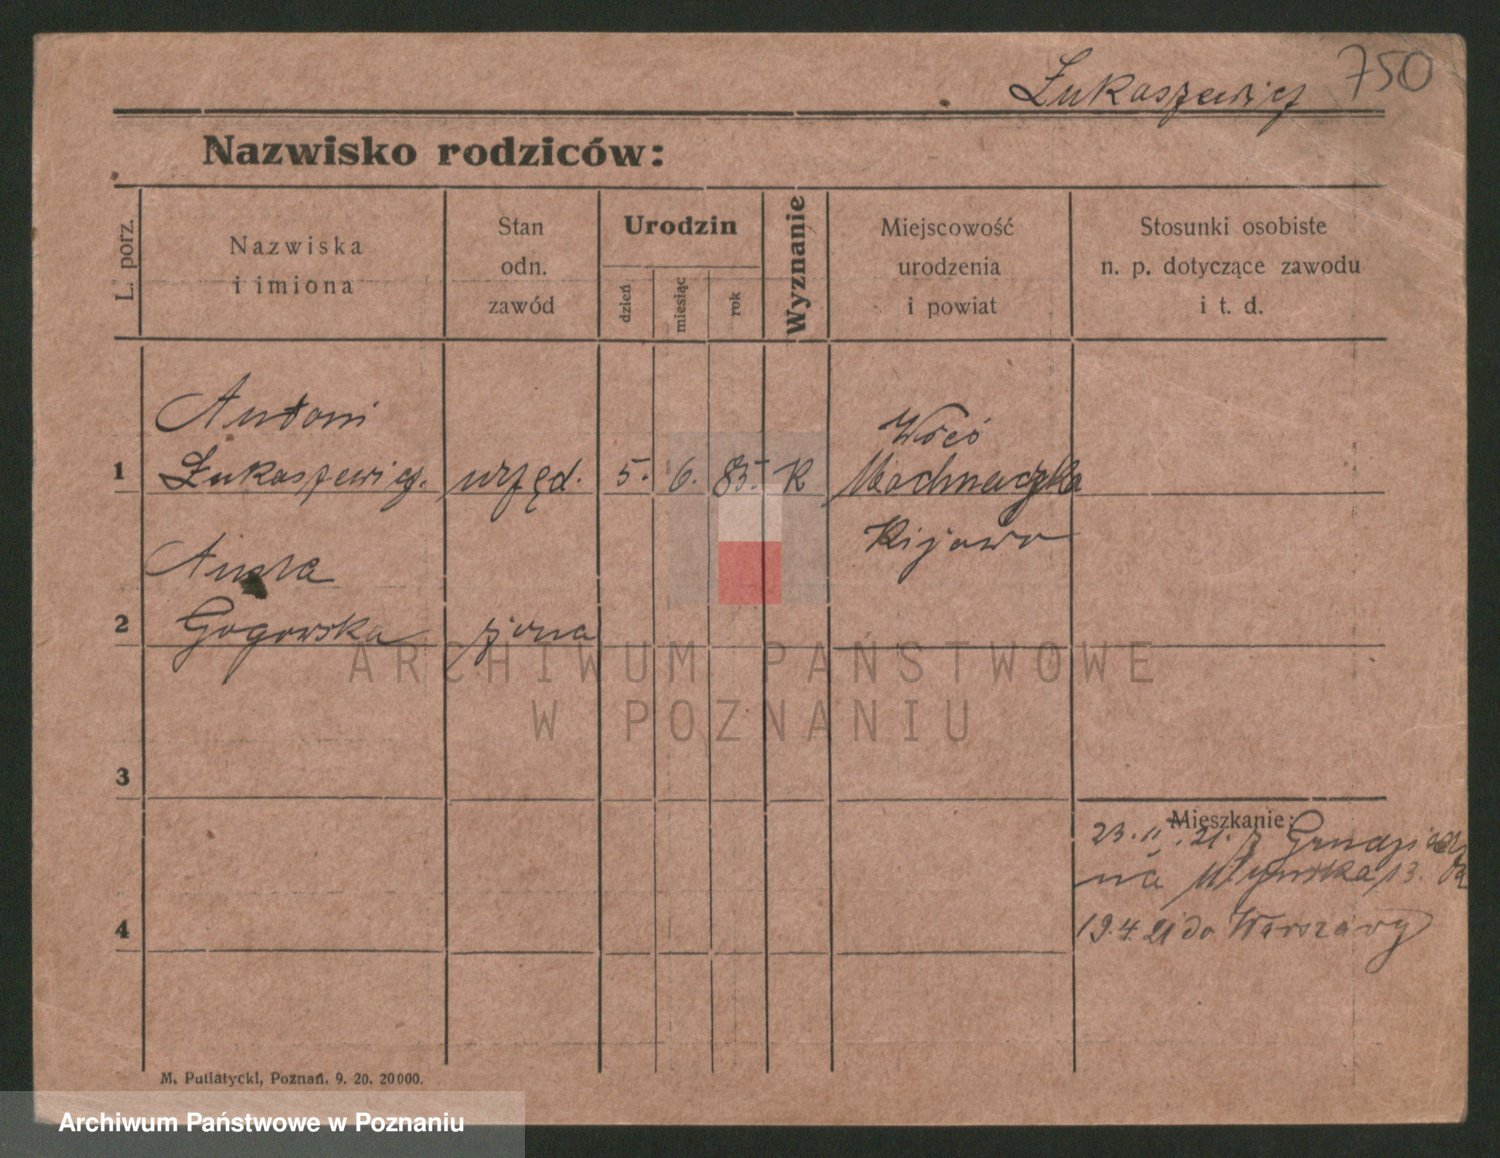 Łukaszewicz 750
Nazwisko rodziców:
L. porz.
Nazwiska
i imiona
Stan
odn.
zawód
Urodzin
dzień
miesiąc
rok
Wyznanie
Miejscowość
urodzenia
i powiat
Stosunki osobiste
n. p. dotyczące zawodu
i t. d.
Antoni
1 Łukaszewicz. urzęd. 5. 6. 85. K
Kijowo
2 Gogowska żona
3
Mieszkanie:
23. 21. z
na Młyńska 13.
4
19.4.21 do Warszawy
M. Putiatycki, Poznań. 9. 20. 20000.
ARCHIWUM PAŃSTWOWE
W POZNANIU
Archiwum Państwowe w Poznaniu